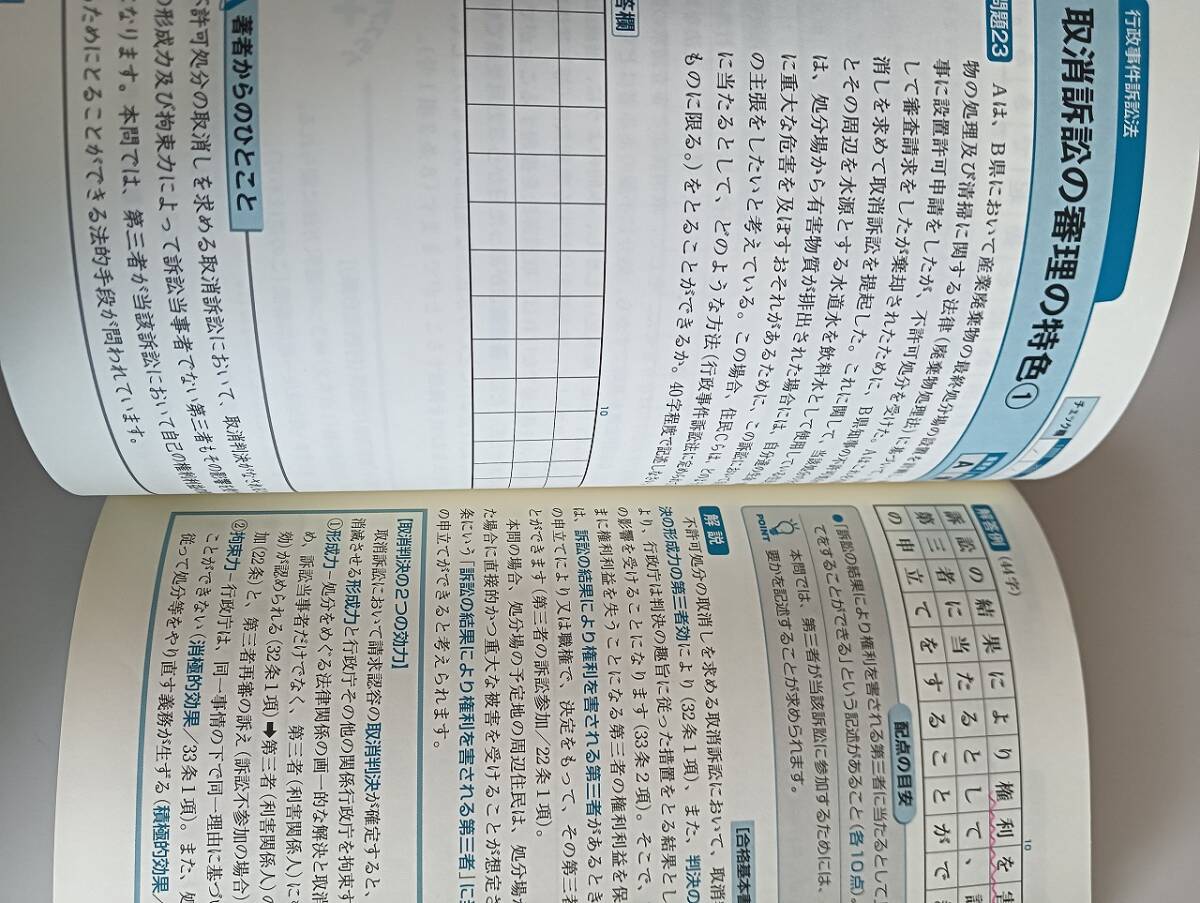 行政事件訴訟法
取消訴訟の審理の特色①
チェック欄
問題23
A
Aは、B県において産業廃棄物の最終処分場の設置を
物の処理及び清掃に関する法律(廃棄物処理法)に基づ
事に設置許可申請をしたが、不許可処分を受けた。Aは
して審査請求をしたが棄却されたために、B県知事の不
消しを求めて取消訴訟を提起した。これに関して、当該
とその周辺を水源とする水道水を飲料水として使用してい
は、処分場から有害物質が排出された場合には、自分達の
に重大な危害を及ぼすおそれがあるために、この訴訟にお
の主張をしたいと考えている。この場合、住民Cらは、
に当たるとして、どのような方法(行政事件訴訟法に定め
ものに限る。)をとることができるか。40字程度で記述しな
答欄
10
著者からのひとこと
不許可処分の取消しを求める取消訴訟において、取消判決がなされ
の形成力及び拘束力によって訴訟当事者でない第三者もその影響を
になります。本問では、第三者が当該訴訟において自己の権利利益
ためにとることができる法的手段が問われています。
解答例
(44字)
10
訴訟の結果により権利を害
第三者に当たるとして、訴
の申立てをすることがで
配点の目安
●「訴訟の結果により権利を害される第三者に当たるとして」
てをすることができる」という記述があること(各10点)。
POINT
本問では、第三者が当該訴訟に参加するためには、
要かを記述することが求められます。
解説
[合格基本書
不許可処分の取消しを求める取消訴訟において、取消
決の形成力の第三者効により(32条1項)、また、判決の
より、行政庁は判決の趣旨に従った措置をとる結果とし
の影響を受けることになります(33条2項)。そこで、
まに権利利益を失うことになる第三者の権利利益を保
は、訴訟の結果により権利を害される第三者があるとき
の申立てにより又は職権で、決定をもって、その第三者
とができます(第三者の訴訟参加/22条1項)。
本問の場合、処分場の予定地の周辺住民は、処分場か
た場合に直接的かつ重大な被害を受けることが想定さ
条にいう「訴訟の結果により権利を害される第三者」に
の申立てができると考えられます。
【取消判決の2つの効力】
取消訴訟において請求認容の取消判決が確定すると、
消滅させる形成力と行政庁その他の関係行政庁を拘束す
①形成力－処分をめぐる法律関係の画一的な解決と取消
め、訴訟当事者だけでなく、第三者(利害関係人)に
効)が認められる(32条1項)➡第三者(利害関係人)の
加(22条)と、第三者再審の訴え(訴訟不参加の場合)
②拘束力－行政庁は、同一事情の下で同一理由に基づい
ことができない(消極的効果/33条1項)。また、処
従って処分等をやり直す義務が生ずる(積極的効果/